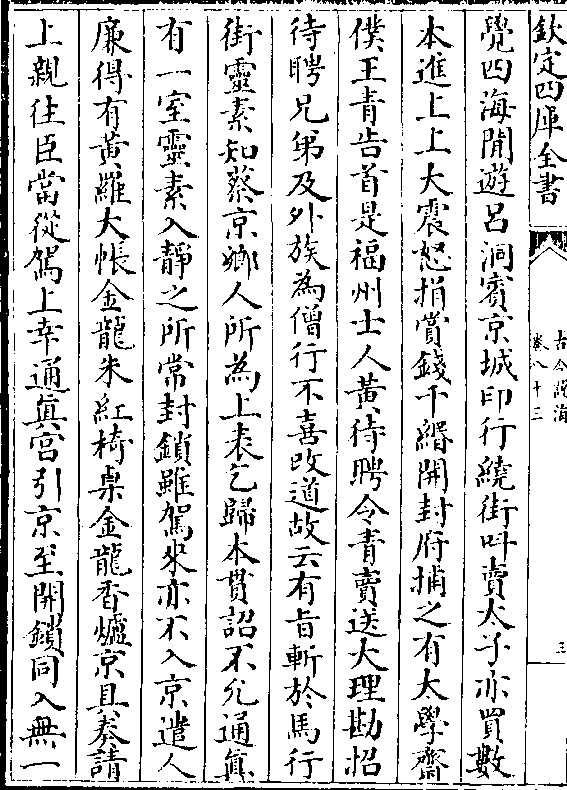 欽定四庫全書
古今說海
卷八十三
三
覺四海閒遊呂洞賓京城印行繞街叫賣太子亦買數
本進上上大震怒捐賞錢千緡開封府捕之有大學齋
僕王青告首是福州士人黃待聘令青賣送大理勘招
待聘兄弟及外族為僧行不喜改道故云有旨斬於馬行
街靈素知蔡京鄉人所為上表乞歸本貫詔不允通真
有一室靈素入靜之所常封鎖雖駕來亦不入京遣人
廉得有黃羅大帳金龍朱紅椅桌金龍香爐京具奏請
上親往臣當從駕上幸通真宮引京至開鎖同入無一